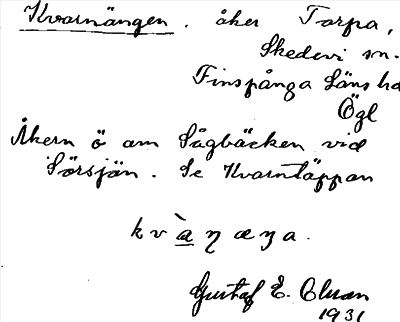 Kvarnängen. åker Torpa,
Skedevi sn.
Finspånga Läns hd
Ögl
Åkern ö om Sågbäcken vid
Sörsjön. Se Kvarntäppan
kv̀aŋæŋa.
Gustaf E. Olsson
1931